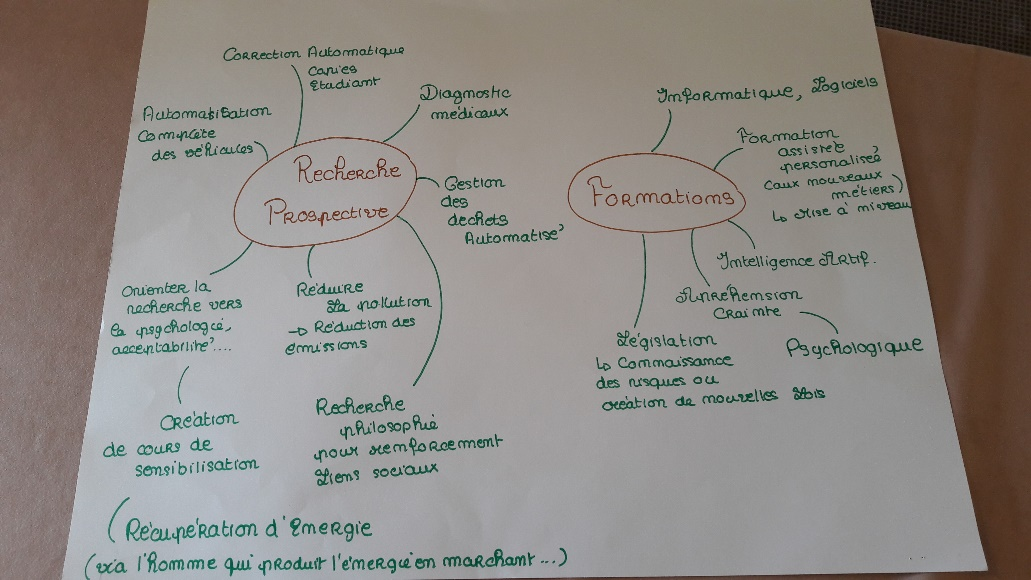 Correction Automatique
Copies
Etudiant
Diagnostic
médicaux
Automatisation
Complète
des véhicules
Recherche
Prospective
Gestion
des
dechets
Automatisé
Orienter la
recherche vers
la psychologie,
acceptabilité....
Réduire
la pollution
→ Réduction des
émissions
Création
de cours de
sensibilisation
Recherche
philosophie
pour renforcement
liens sociaux
Récupération d'Energie
(via l'homme qui produit l'énergie en marchant ...)
Informatique, Logiciels
Formation
assistée
personalisée
(aux nouveaux
métiers)
↳ Mise à niveau
Formations
Intelligence Artif.
Appréhension
Crainte
Psychologique
Législation
↳ Connaissance
des risques ou
création de nouvelles Lois